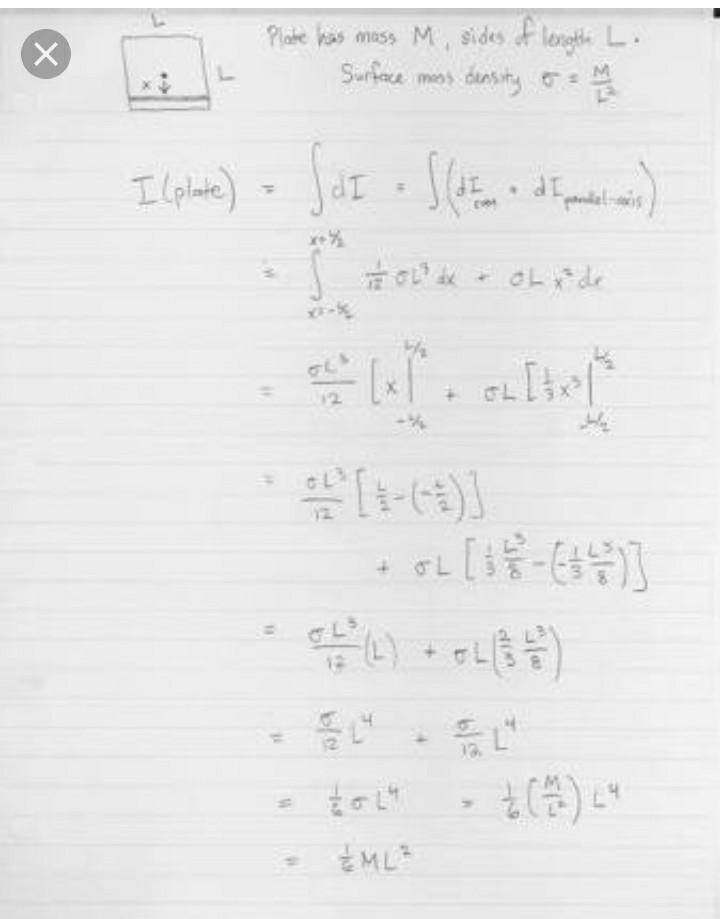 L
Plate has mass M, sides of length L.
L
x
Surface mass density σ = M/L²
I(plate) = ∫dI = ∫(dI_com + dI_parallel-axis)
= ∫_{x=-L/2}^{x=L/2} 1/12 σL³ dx + σL x² dx
= σL³/12 [x|_{-L/2}^{L/2} + σL [1/3 x³|_{-L/2}^{L/2}
= σL³/12 [L/2 - (-L/2)]
+ σL [1/3 L³/8 - (-1/3 L³/8)]
= σL³/12 (L) + σL(2/3 L³/8)
= σ/12 L⁴ + σ/12 L⁴
= 1/6 σL⁴ = 1/6 (M/L²) L⁴
= 1/6 ML²